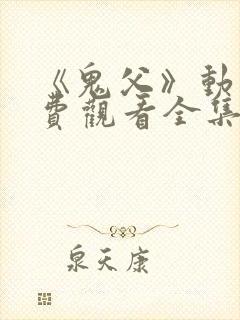 《鬼父》動
費觀看全集
泉天康